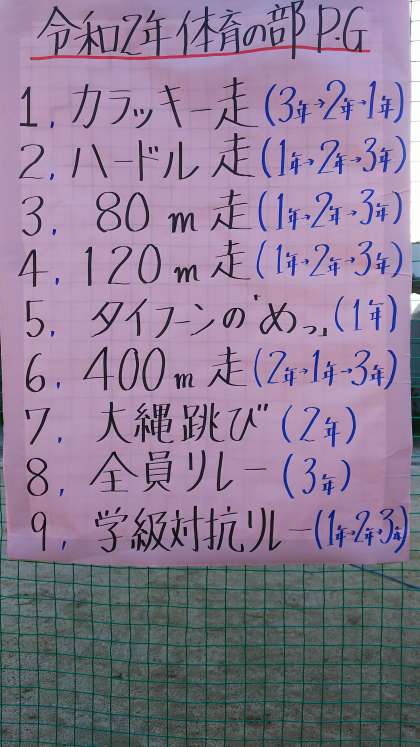 令和2年 体育の部 P.G
1. カラッキー走(3年→2年→1年)
2. ハードル走(1年→2年→3年)
3. 80m走(1年→2年→3年)
4. 120m走(1年→2年→3年)
5. タイフーンの「めっ」(1年)
6. 400m走(2年→1年→3年)
7. 大縄跳び(2年)
8. 全員リレー(3年)
9. 学級対抗リレー(1年→2年→3年)